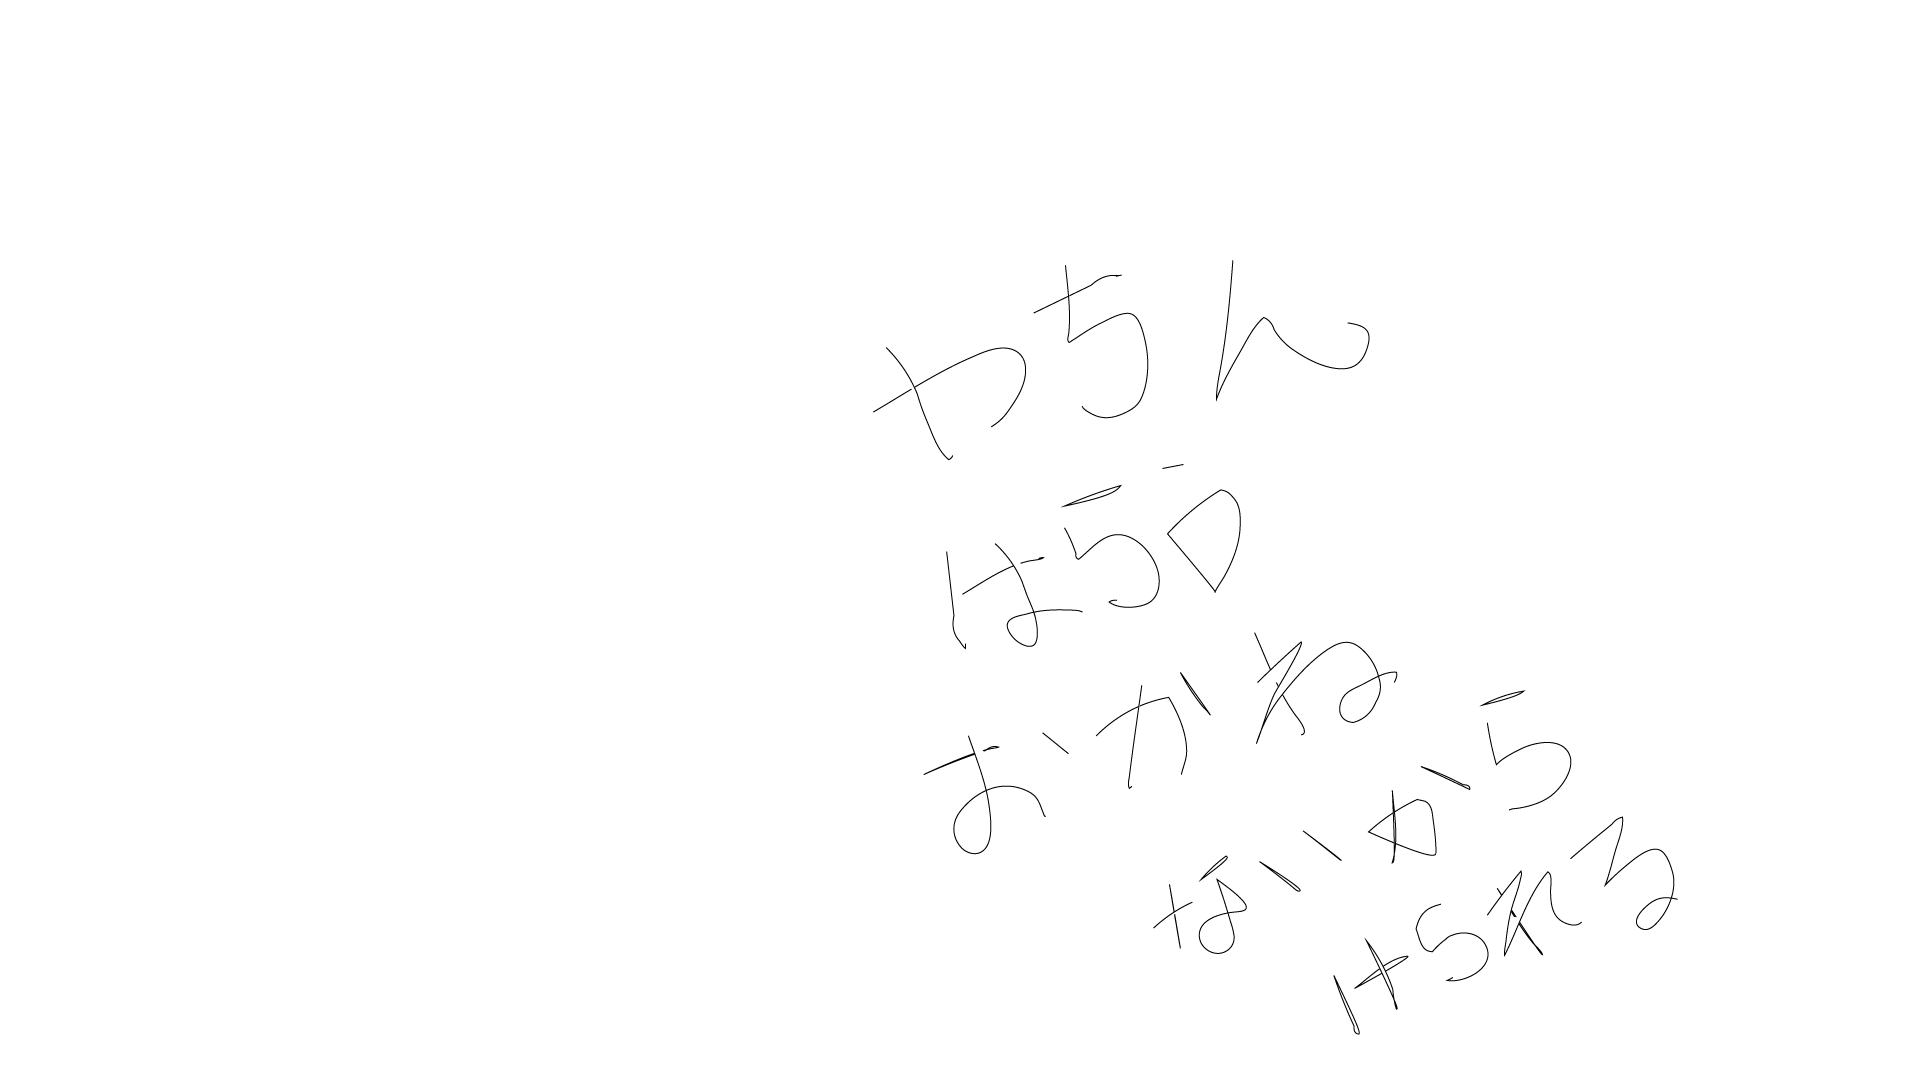 やちん
はらう
おかね
ないから
けられる